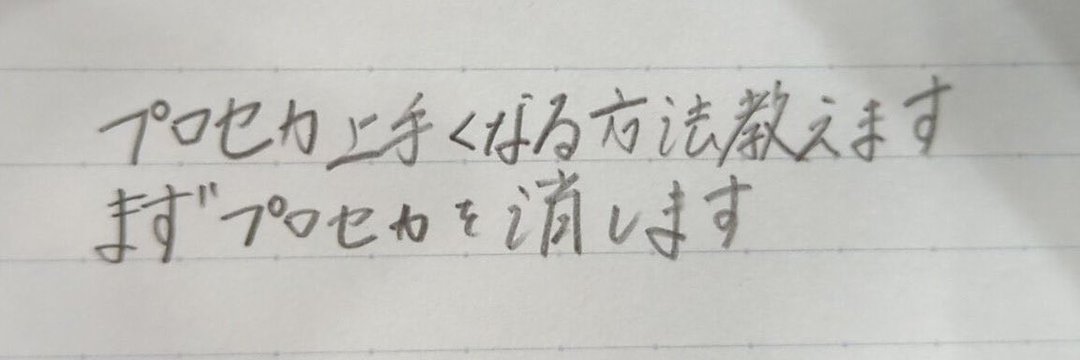 プロセカ上手くなる方法教えます
まずプロセカを消します